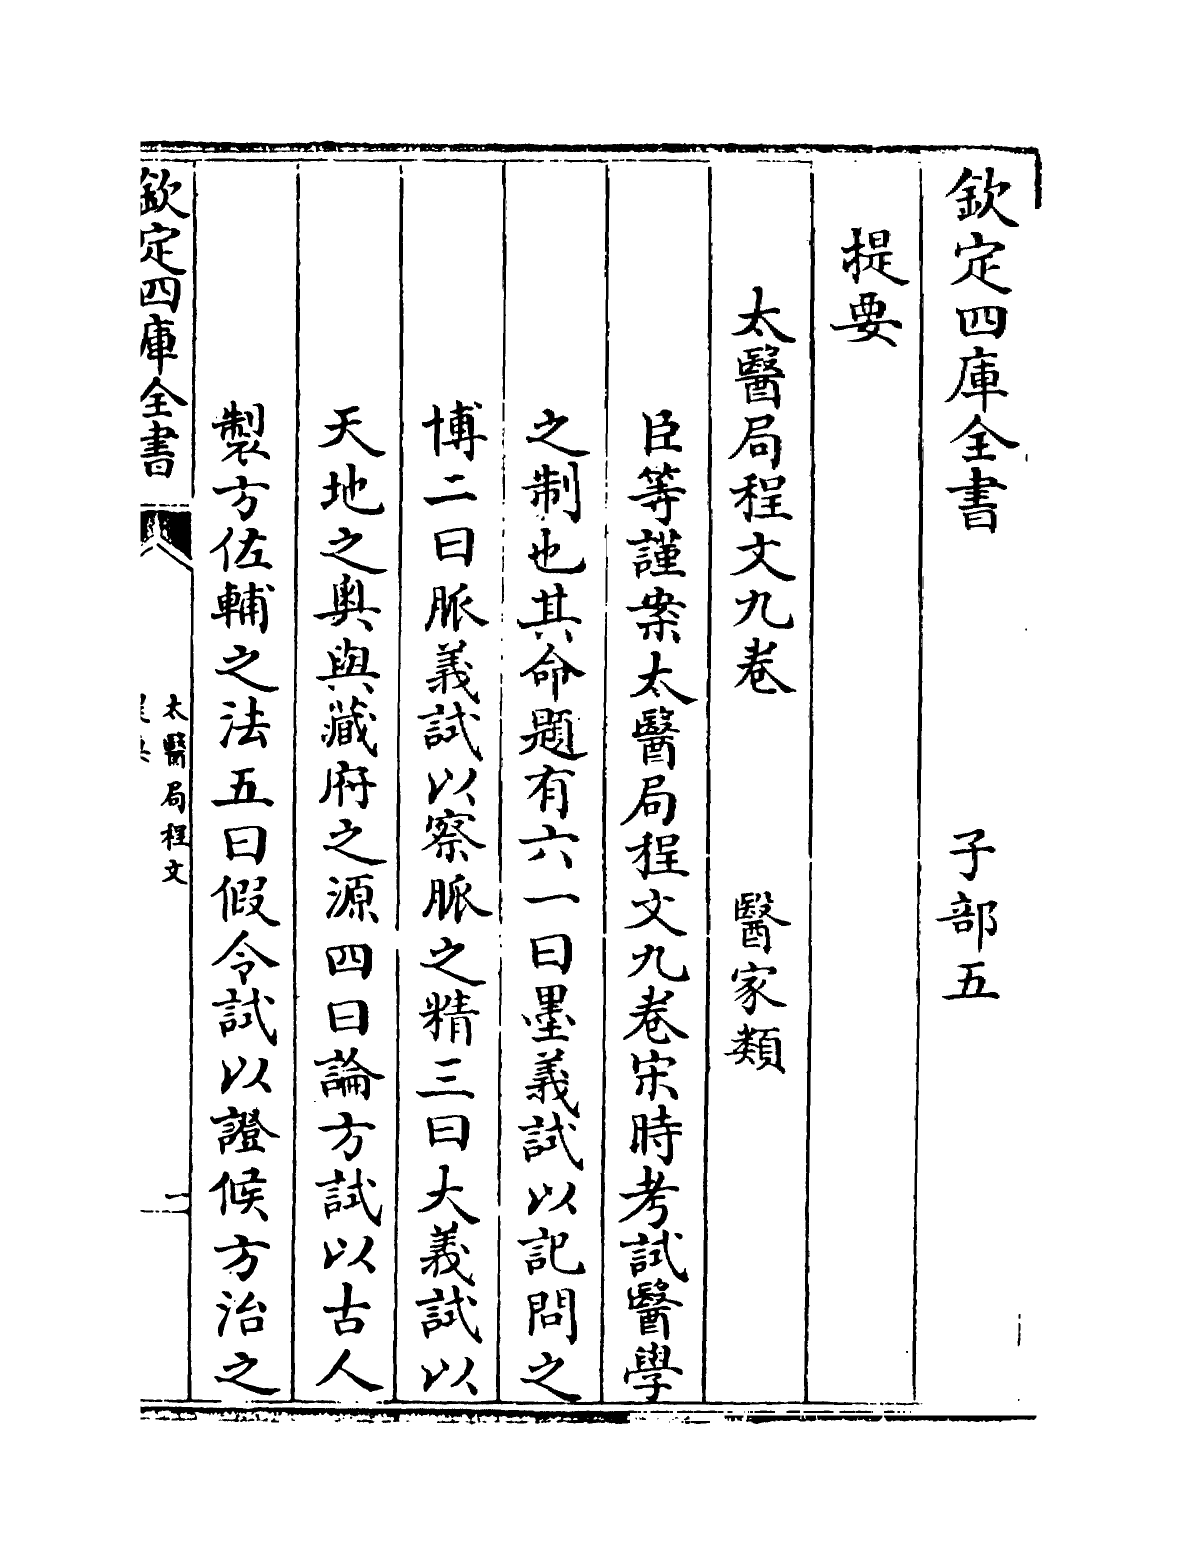 欽定四庫全書　子部五
提要
太醫局程文九卷　醫家類
臣等謹案太醫局程文九卷宋時考試醫學
之制也其命題有六一曰墨義試以記問之
博二曰脈義試以察脈之精三曰大義試以
天地之奥與藏府之源四曰論方試以古人
製方佐輔之法五曰假令試以證候方治之
欽定四庫全書
太醫局程文
一